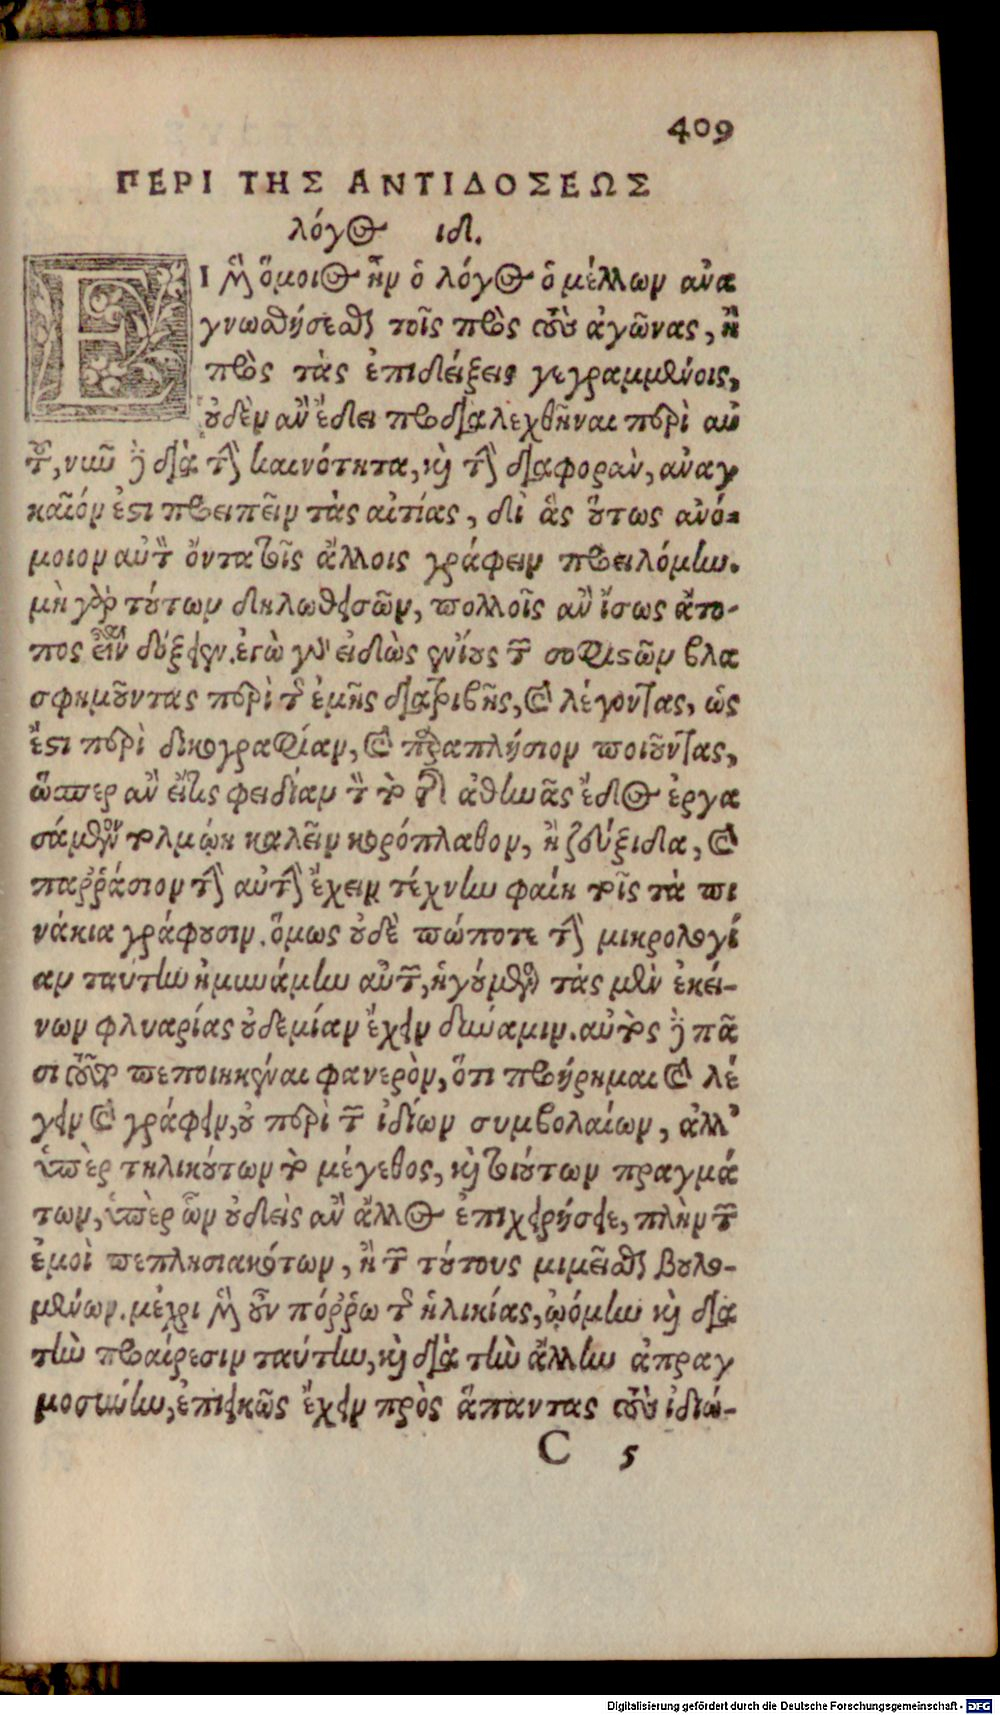 409
ΠΕΡΙ ΤΗΣ ΑΝΤΙΔΟΣΕΩΣ
λόγος ιδ.
ΕΙ μὲν ὅμοιος ἦν ὁ λόγος ὁ μέλλων ἀνα
γνωσθήσεσθαι τοῖς πρὸς τοὺς ἀγῶνας, ἢ
πρὸς τὰς ἐπιδείξεις γεγραμμένοις,
οὐδὲν ἂν ἔδει προδιαλεχθῆναι περὶ αὐ
τοῦ, νῦν δὲ διὰ τὴν καινότητα, καὶ τὴν διαφορὰν, ἀναγ
καῖόν ἐστι προειπεῖν τὰς αἰτίας, δι' ἃς οὕτως ἀνό-
μοιον αὐτὸν ὄντα τοῖς ἄλλοις γράφειν προειλόμην.
μὴ γὰρ τούτων δηλωθεισῶν, πολλοῖς ἂν ἴσως ἄτο-
πος εἶναι δόξειεν. ἐγὼ γὰρ εἰδὼς ἐνίους τῶν σοφιστῶν βλα
σφημοῦντας περὶ τῆς ἐμῆς διατριβῆς, καὶ λέγοντας, ὡς
ἔστι περὶ δικογραφίαν, καὶ παραπλήσιον ποιοῦντας,
ὥσπερ ἂν εἴ τις φειδίαν τὸν τὸ τῆς ἀθηνᾶς ἕδος ἐργα
σάμενον τολμῴη καλεῖν κορόπλαθον, ἢ ζεύξιδα, καὶ
παῤῥάσιον τὴν αὐτὴν ἔχειν τέχνην φαίη τοῖς τὰ πι
νάκια γράφουσιν. ὅμως οὐδὲ πώποτε τὴν μικρολογί
αν ταύτην ἠμυνάμην αὐτῶν, ἡγούμενος τὰς μὲν ἐκεί-
νων φλυαρίας οὐδεμίαν ἔχειν δύναμιν. αὐτὸς δὲ πᾶ
σι τοῦτο πεποιηκέναι φανερὸν, ὅτι προῄρημαι καὶ λέ
γειν καὶ γράφειν, οὐ περὶ τῶν ἰδίων συμβολαίων, ἀλλ'
ὑπὲρ τηλικούτων τὸ μέγεθος, καὶ τοιούτων πραγμά
των, ὑπὲρ ὧν οὐδεὶς ἂν ἄλλος ἐπιχειρήσειε, πλὴν τῶν
ἐμοὶ πεπλησιακότων, ἢ τῶν τούτους μιμεῖσθαι βουλο-
μένων. μέχρι μὲν οὖν πόῤῥω τῆς ἡλικίας, ᾠόμην καὶ διὰ
τὴν προαίρεσιν ταύτην, καὶ διὰ τὴν ἄλλην ἀπραγ
μοσύνην, ἐπιεικῶς ἔχειν πρὸς ἅπαντας τοὺς ἰδιώ-
C 5
Digitalisierung gefördert durch die Deutsche Forschungsgemeinschaft - DFG